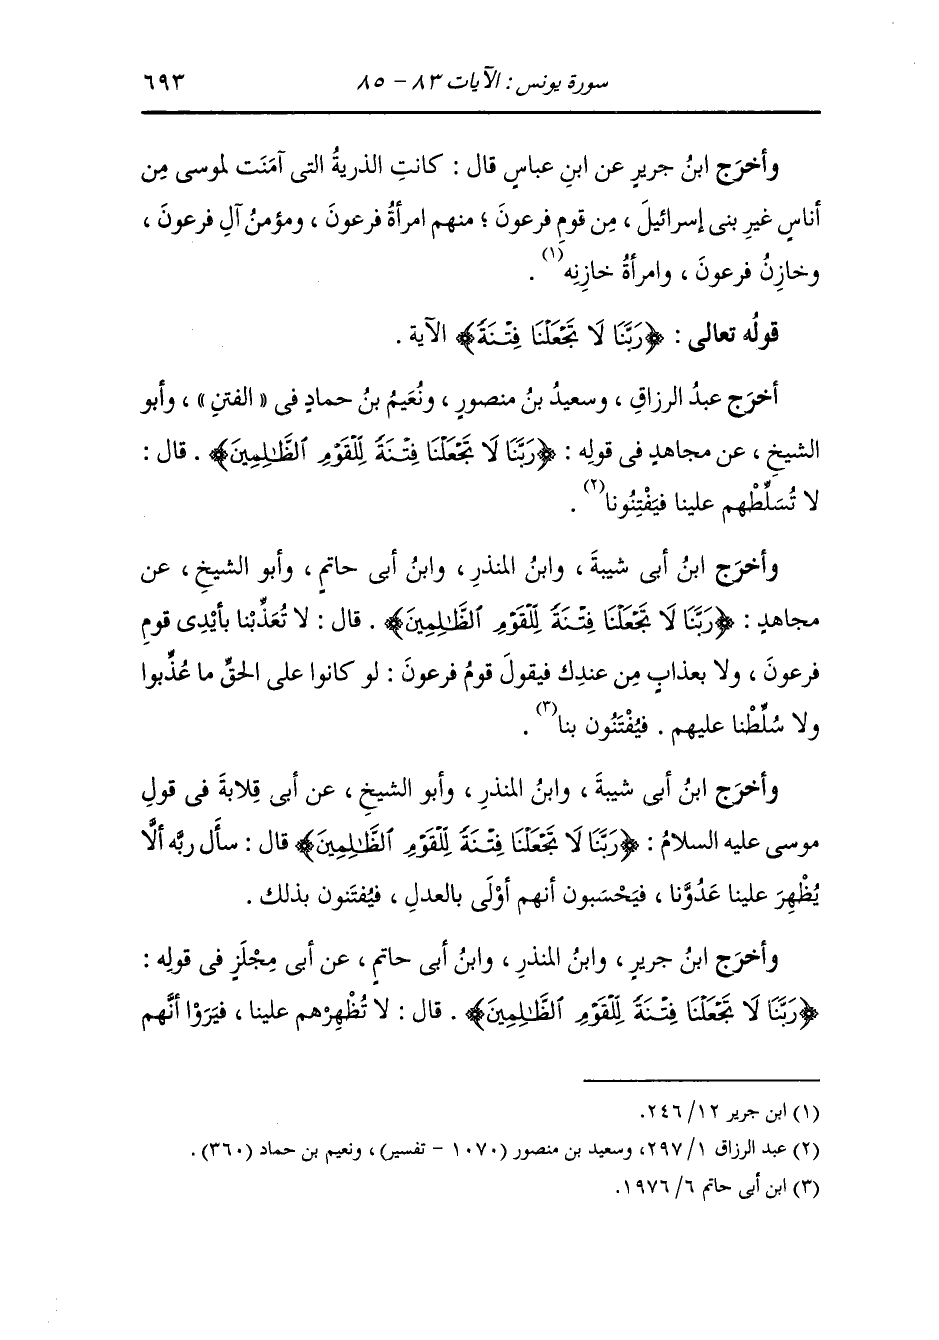 سورة يونس : الآيات ٨٣ - ٨٥ ٦٩٣
وأخرَج ابنُ جريرٍ عن ابنِ عباسٍ قال : كانتِ الذريةُ التى آمَنَت لموسى مِن
أناسٍ غيرِ بنى إسرائيلَ ، مِن قومِ فرعونَ ؛ منهم امرأةُ فرعونَ ، ومؤمنُ آلِ فرعونَ ،
وخازنُ فرعونَ ، وامرأةُ خازنِه(١) .
قولُه تعالى : ﴿رَبَّنَا لَا تَجْعَلْنَا فِتْنَةً﴾ الآية .
أخرَج عبدُ الرزاقِ ، وسعيدُ بنُ منصورٍ ، ونُعَيمُ بنُ حمادٍ فى « الفتنِ » ، وأبو
الشيخِ ، عن مجاهدٍ فى قولِه : ﴿رَبَّنَا لَا تَجْعَلْنَا فِتْنَةً لِّلْقَوْمِ ٱلظَّـٰلِمِينَ﴾ . قال :
لا تُسَلِّطْهم علينا فيَفْتِنُونا(٢) .
وأخرَج ابنُ أبى شيبةَ ، وابنُ المنذرِ ، وابنُ أبى حاتمٍ ، وأبو الشيخِ ، عن
مجاهدٍ : ﴿رَبَّنَا لَا تَجْعَلْنَا فِتْنَةً لِّلْقَوْمِ ٱلظَّـٰلِمِينَ﴾ . قال : لا تُعَذِّبْنا بأَيْدِى قومِ
فرعونَ ، ولا بعذابٍ مِن عندِك فيقولَ قومُ فرعونَ : لو كانوا على الحقِّ ما عُذِّبوا
ولا سُلِّطْنا عليهم . فيُفْتَنُون بنا(٣) .
وأخرَج ابنُ أبى شيبةَ ، وابنُ المنذرِ ، وأبو الشيخِ ، عن أبى قِلابةَ فى قولِ
موسى عليه السلامُ : ﴿رَبَّنَا لَا تَجْعَلْنَا فِتْنَةً لِّلْقَوْمِ ٱلظَّـٰلِمِينَ﴾ قال : سأَل ربَّه ألَّا
يُظْهِرَ علينا عَدُوَّنا ، فيَحْسَبون أنهم أَوْلَى بالعدلِ ، فيُفتَنون بذلك .
وأخرَج ابنُ جريرٍ ، وابنُ المنذرِ ، وابنُ أبى حاتمٍ ، عن أبى مِجْلَزٍ فى قولِه :
﴿رَبَّنَا لَا تَجْعَلْنَا فِتْنَةً لِّلْقَوْمِ ٱلظَّـٰلِمِينَ﴾ . قال : لا تُظْهِرْهم علينا ، فيَرَوْا أنَّهم
(١) ابن جرير ١٢/ ٢٤٦.
(٢) عبد الرزاق ١/ ٢٩٧، وسعيد بن منصور (١٠٧٠ - تفسير)، ونعيم بن حماد (٣٦٠) .
(٣) ابن أبى حاتم ٦/ ١٩٧٦.